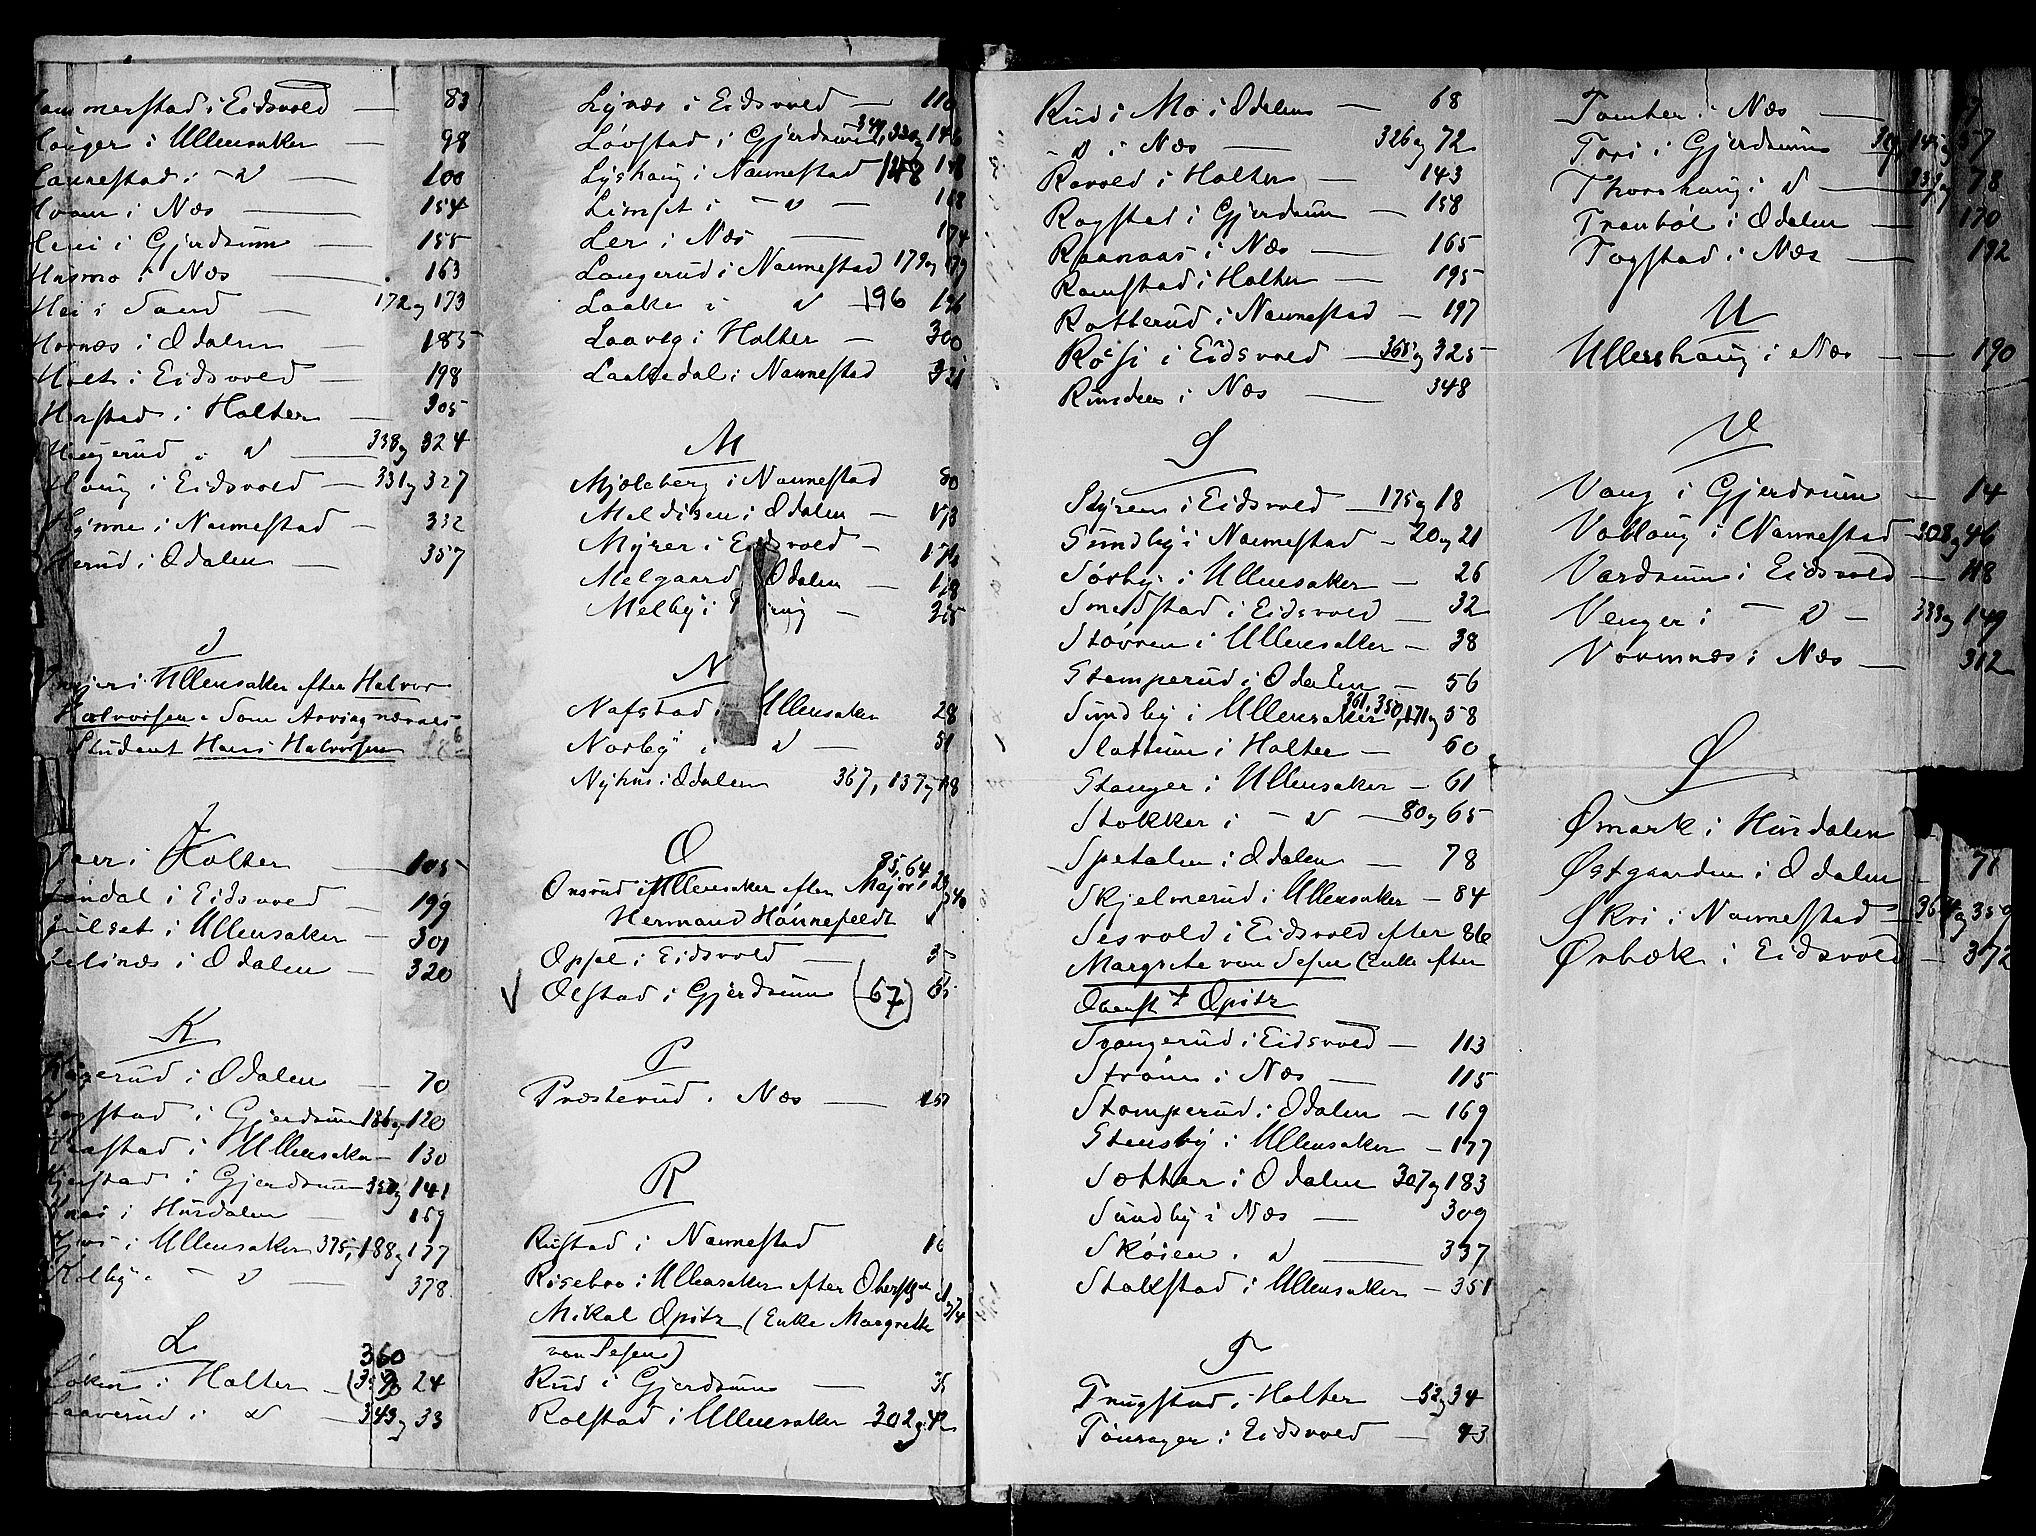 ammerstad i Eidsvold — 83
Hauger i Ullensaker — 98
Hannestad i — d — 100
Hvam i Næs — 154
Heni i Gjerdrum — 155
Husmo i Næs — 163
Hei i Sand — 172 og 173
Hornæs i Odalen — 185
Holt i Eidsvold — 198
Herstad i Holter — 305
Haugerud i d — 338 og 324
Haug i Eidsvold — 331 og 327
Hynne i Nannestad — 332
Herud i Odalen — 357
I
i Ullensaker efter Halvor
Halvorsen - Som Arving nævnes
Student Hans Halvorsen
J
Jaer i Holter — 105
Jøndal i Eidsvold — 199
Julset i Ullensaker — 301
Jelsnæs i Odalen — 320
K
Kaxerud i Odalen — 70
Kogstad i Gjerdrum 186 og 120
Krastad i Ullensaker — 130
Kjerstad i Gjerdrum 350 og 141
Knai i Hurdalen — 159
i Ullensaker 375, 188 og 177
Kolby i — d — 378
L
360
Løken i Holter — (359 og 24
Laaverud i d — 343 og 33
Lynæs i Eidsvold — 110
Løvstad i Gjerdrum 349, 330 og 146
Lyshaug i Nannestad 148 148
Limset i — d — 168
Ler i Næs — 174
Laugerud i Nannestad 179 og 179
Laake i d 196 196
Laaveg i Holter — 300
Laakedal i Nannestad 321
M
Mjøleberg i Nannestad 50
Meldisen i Odalen — 173
Myrer i Eidsvold — 176
Melgaard Odalen — 118
Melby i — 315
N
Nafstad i Ullensaker 28
Norby i d — 51
Nyhus i Odalen 367, 137 og 118
O
85, 64
Onsrud i Ullensaker efter Major 29 og 40
Hermand Hønnefeldt
Oppel i Eidsvold — 35
Olstad i Gjerdrum (67) 65
P
Præsterud i Næs — 157
R
Rustad i Nannestad 16
Risebro i Ullensaker efter Oberst
Mikal Opitz (Enke Margrethe
von Sesen)
Rud i Gjerdrum — 35
Rolstad i Ullensaker 302 og 42
Rud i Mo i Odalen — 68
- d i Næs — 326 og 72
Ravold i Holter — 143
Rogstad i Gjerdrum — 158
Raanaas i Næs — 165
Ramstad i Holter — 195
Rotterud i Nannestad — 197
Røisi i Eidsvold — 365 og 325
Runden i Næs — 348
S
Styren i Eidsvold — 175 og 18
Sundby i Nannestad — 20 og 21
Sørby i Ullensaker — 26
Smedstad i Eidsvold — 32
Støvren i Ullensaker — 38
Stemperud i Odalen — 56
Sundby i Ullensaker 361, 350, 171 og 58
Slattum i Holter — 60
Stanger i Ullensaker — 61
Stokker i — d — 80 og 65
Spetalen i Odalen — 78
Skjelmerud i Ullensaker — 84
Sesvold i Eidsvold efter 86
Margrete von Sesen Enke efter
Oberst Opitz
Svangerud i Eidsvold — 113
Strøm i Næs — 115
Stomperud i Odalen — 169
Stensby i Ullensaker — 177
Sætter i Odalen 307 og 183
Sundby i Næs — 309
Skøien i d — 337
Stalstad i Ullensaker — 351
T
Trugstad i Holter — 52 og 34
Tønsager i Eidsvold — 43
Tomter i Næs — 47
Tori i Gjerdrum 145 og 57
Thorshaug i d — 339 og 78
Tranbøl i Odalen — 170
Togstad i Næs — 192
U
Ullershaug i Næs — 190
V
Vang i Gjerdrum — 14
Vablaug i Nannestad 308 og 46
Vardrum i Eidsvold — 48
Venger i — d — 333 og 149
Vormnæs i Næs — 312
Ø
Ømark i Hurdalen
Østgaarden i Odalen — 71
Økri i Nannestad — 364 og 359
Ørbæk i Eidsvold — 372